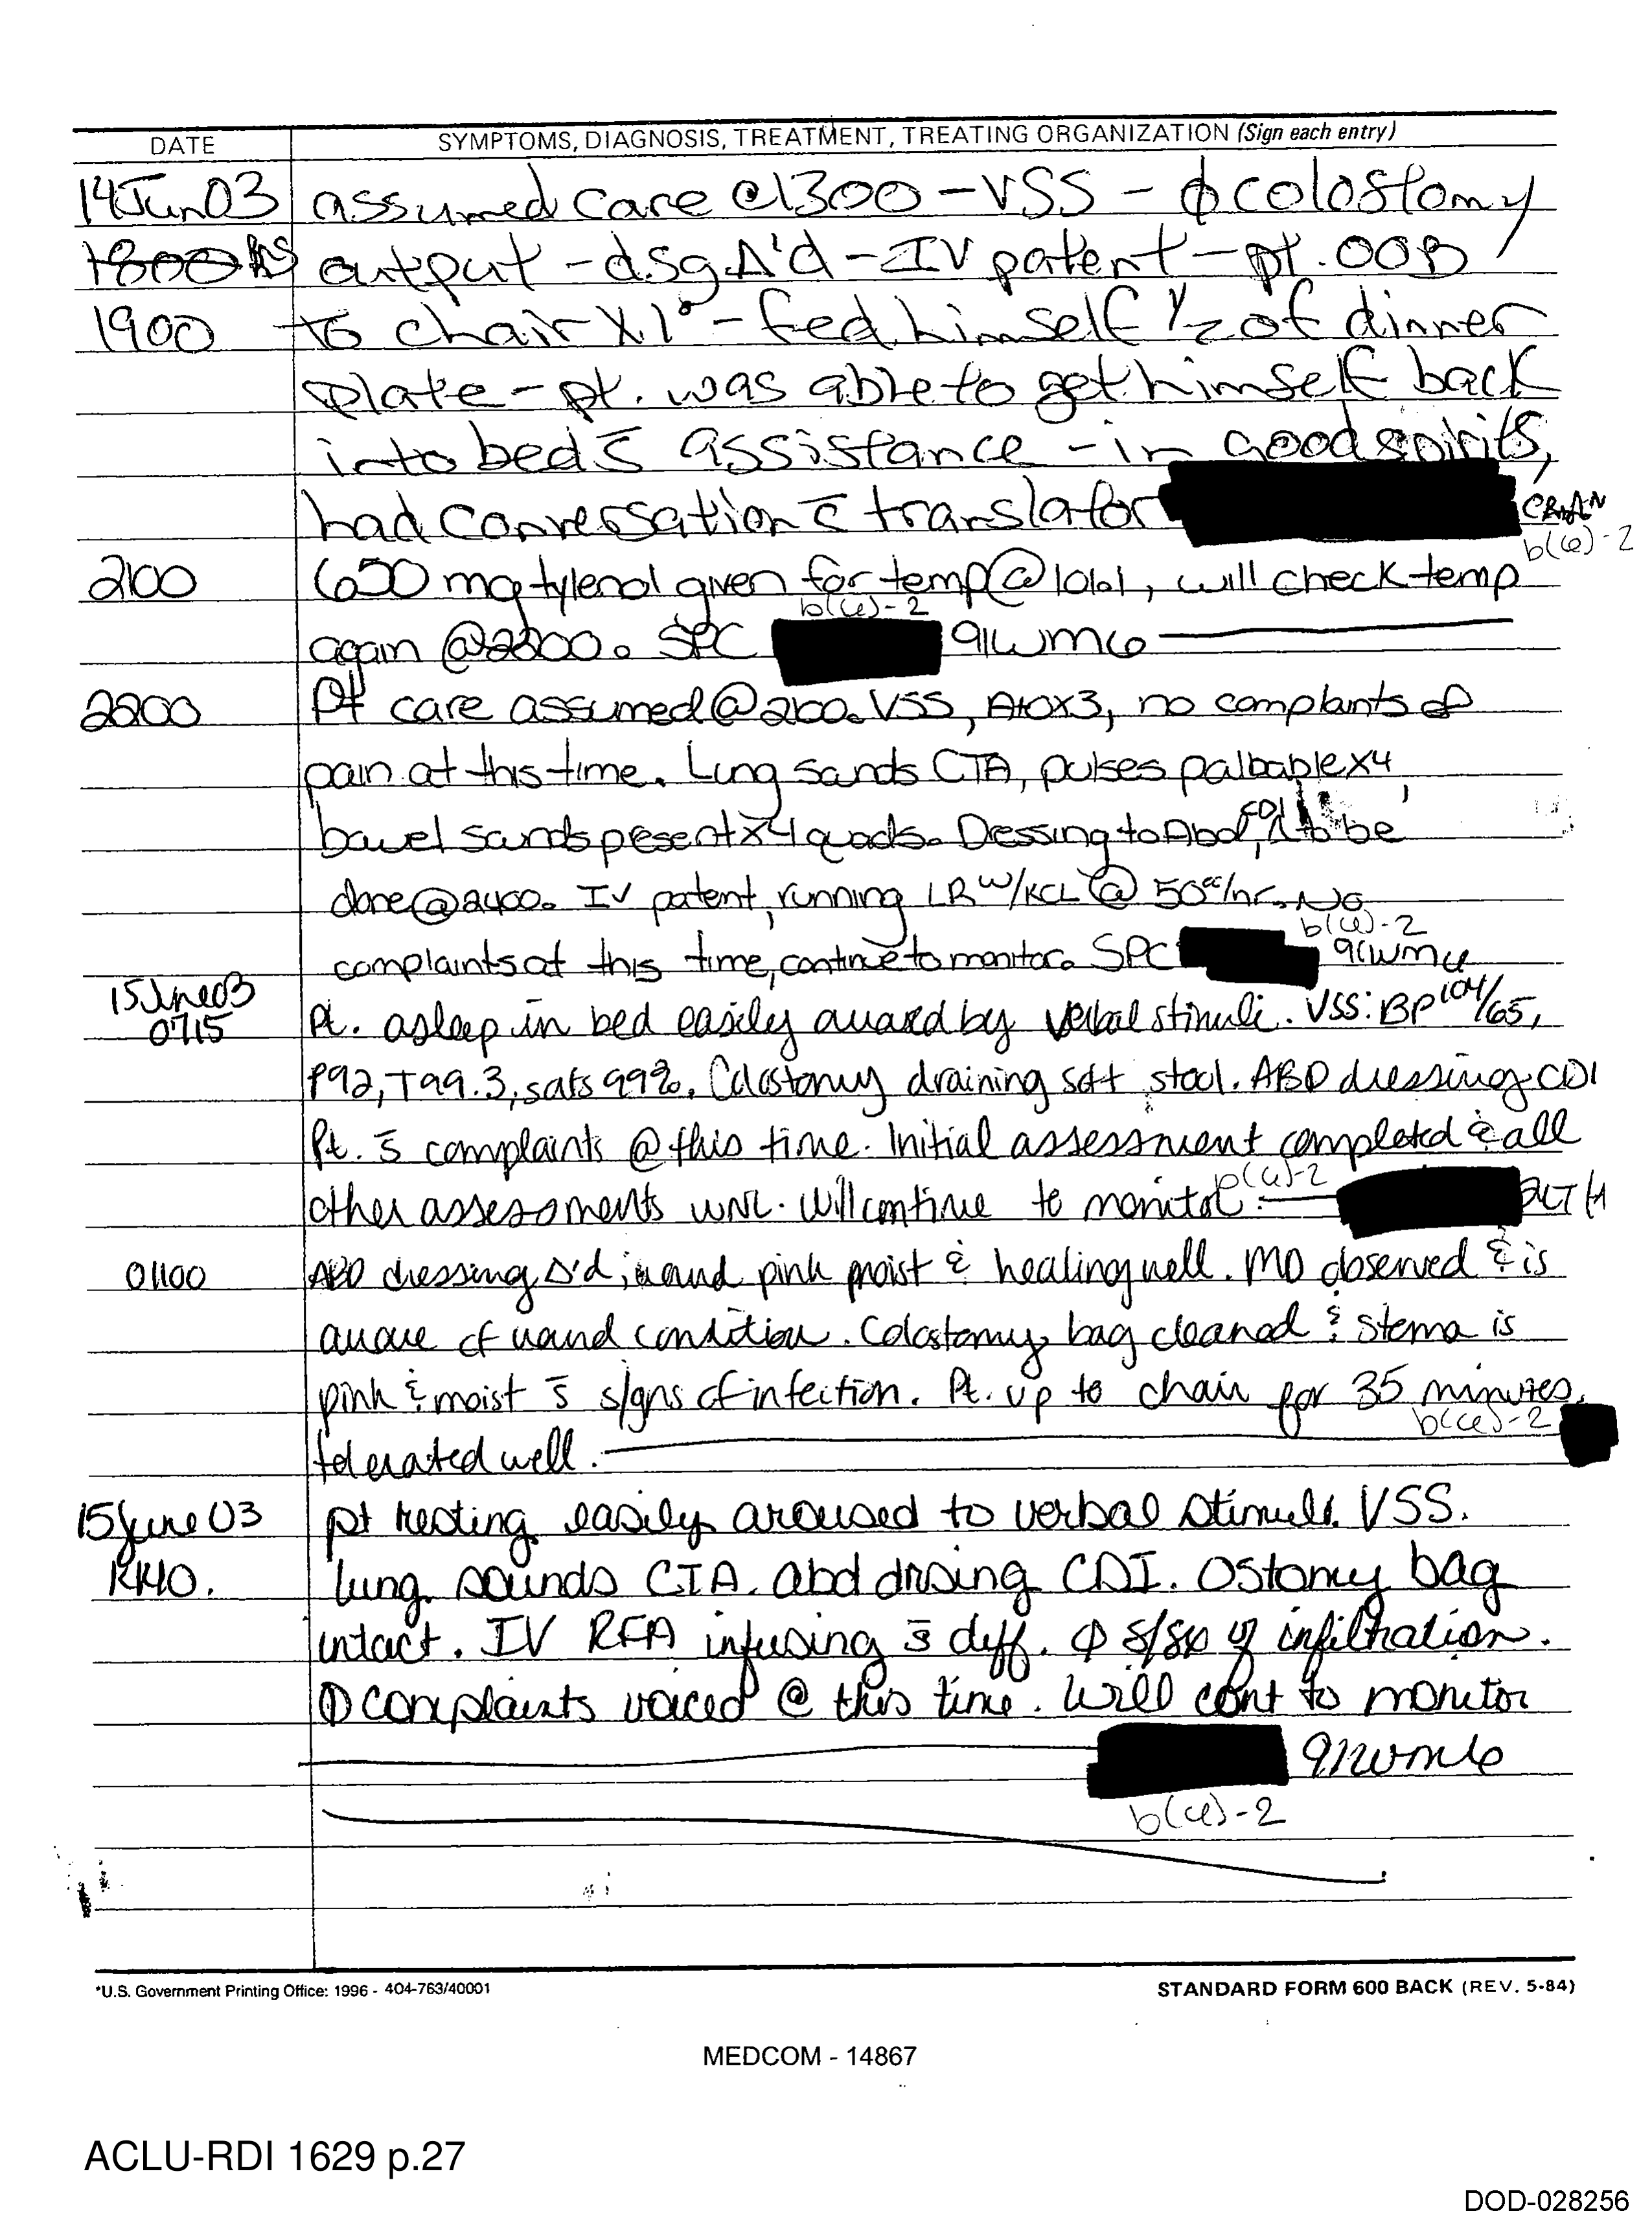 DATE
SYMPTOMS, DIAGNOSIS, TREATMENT, TREATING ORGANIZATION (Sign each entry)
14Jun03 assumed care @1300 - VSS - ϕ colostomy
1800 output - dsg Δ'd - IV patent - pt. OOB
1900 to chair X 1° - fed himself 1/2 of dinner
plate - pt. was able to get himself back
into bed s̄ assistance - in good spirits,
had conversation c̄ translator
b(6)-2
2100 650 mg tylenol given for temp @ 101.1, will check temp
b(6)-2
again @2200. SPC 91WM6
2200 Pt care assumed @ 2100. VSS, A+OX3, no complaints of
pain at this time. Lung sounds CTA, pulses palbable x4,
bowel sounds present x4 quads. Dressing to Abd CDI, Δ to be
done @ 2400. IV patent, running LR w/KCL @ 50cc/hr. No
b(6)-2
complaints at this time, continue to monitor. SPC 91WM6
15June03
0715 Pt. asleep in bed easily aroused by verbal stimuli. VSS: BP 104/65,
P92, T99.3, sats 99%. Colostomy draining soft stool. ABD dressing CDI
Pt. s̄ complaints @ this time. Initial assessment completed & all
b(6)-2
other assessments WNL. Will continue to monitor.
ABD dressing Δ'd; wound pink moist & healing well. MD observed & is
aware of wound condition. Colostomy bag cleaned & stoma is
pink & moist s̄ signs of infection. Pt. up to chair for 35 minutes,
b(6)-2
tolerated well.
15June03 pt resting easily aroused to verbal stimuli. VSS.
lung sounds CTA. abd drsing CDI. Ostomy bag
intact. IV RFA infusing s̄ diff. ϕ s/sx of infiltration.
ϕ complaints voiced @ this time. Will cont to monitor
91WM6
b(6)-2
*U.S. Government Printing Office: 1996 - 404-763/40001
STANDARD FORM 600 BACK (REV. 5-84)
MEDCOM - 14867
ACLU-RDI 1629 p.27
DOD-028256